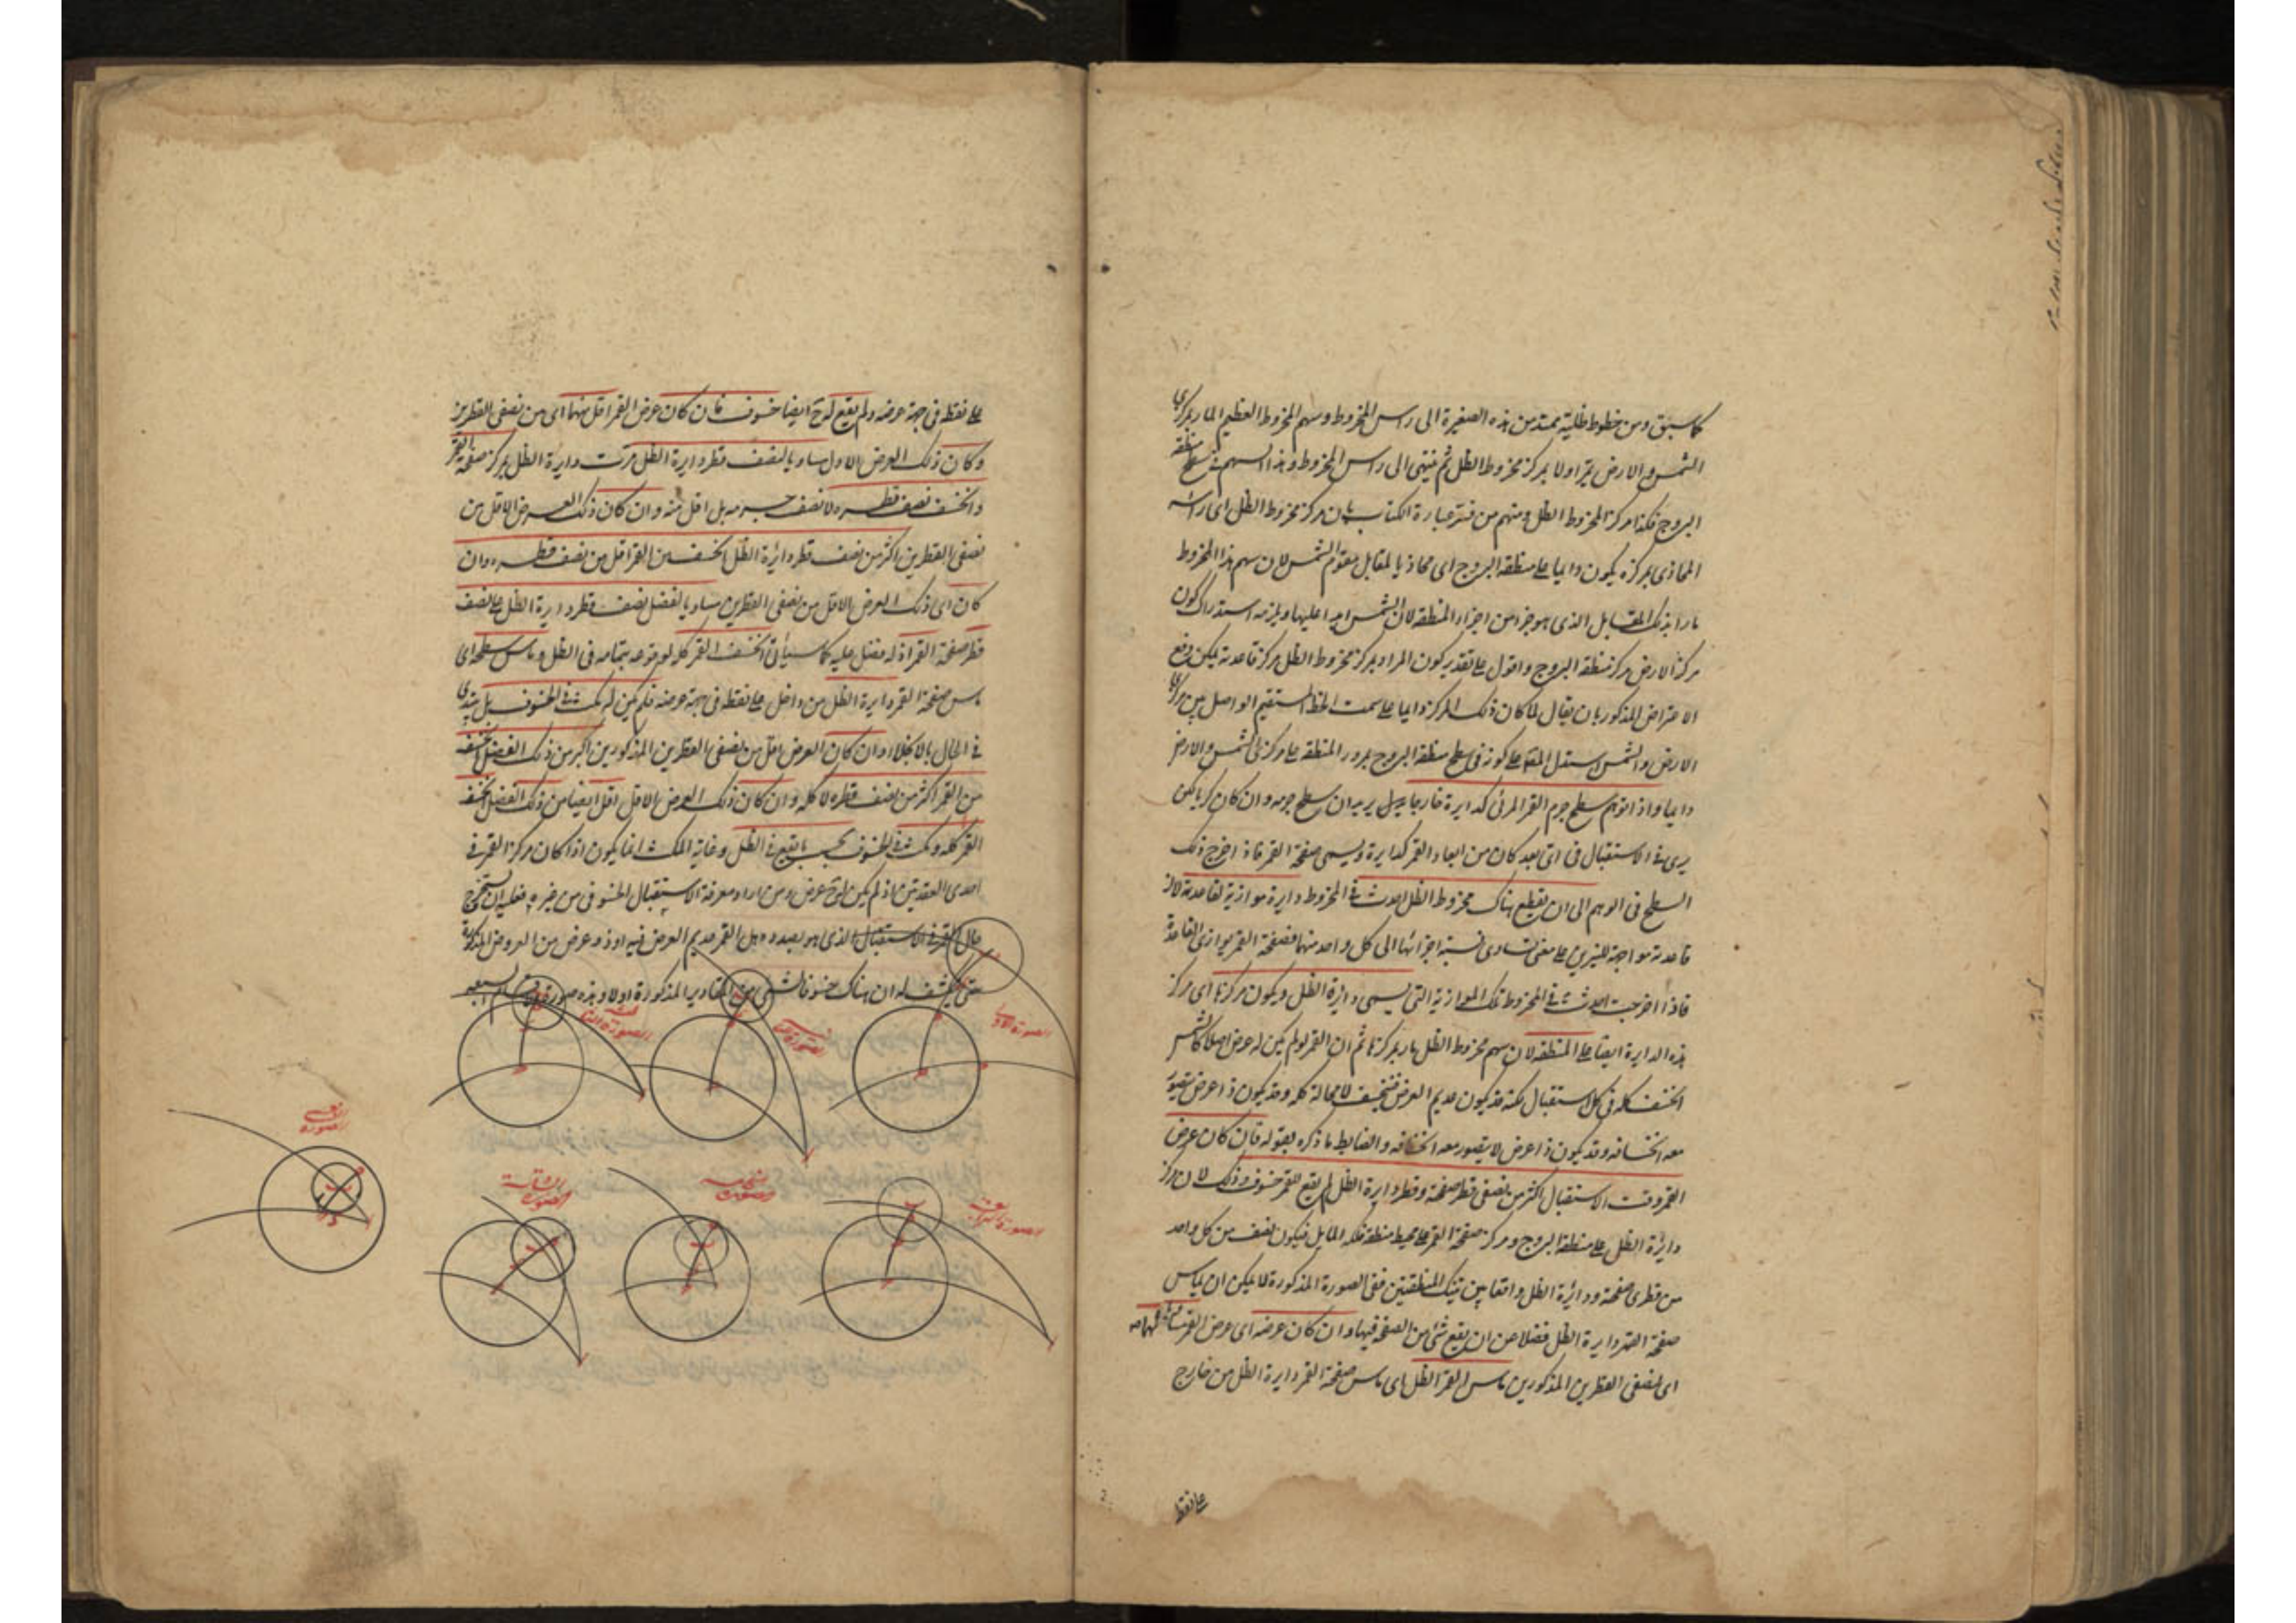 كما سبق ومن خطوط ظلية ممتد من هذه الصغيرة الى راس المخروط وسهم المخروط العظيم المار بمركزي
الشمس والارض يمر اولا بمركز مخروط الظل ثم ينتهى الى راس المخروط وهذا السهم فى سطح منطقة
البروج فكذا مركز المخروط الظل ومنهم من فسر عبارة الكتاب بان مركز مخروط الظل اى راسه
المحاذى بمركزه يكون دايما على منطقة البروج اى محاذيا لمقابل مقوم الشمس لان سهم هذا المخروط
مار بذلك المقابل الذى هو جزء من اجزاء المنطقة لان الشمس ابدا عليها ويلزمه استدراك كون
مركز الارض مركز منطقة البروج واقول على تقدير كون المراد بمركز مخروط الظل مركز قاعدته يمكن دفع
الاعتراض المذكور بان يقال لما كان ذلك المركز دايما على سمت الخط المستقيم الواصل بين مركزى
الارض والشمس استدل المص على كونه فى سطح منطقة البروج بمرور المنطقة على مركزى الشمس والارض
دايما واذا توهم سطح جرم القمر المرئى كدايرة خارجا يريد ان سطح جرمه وان كان كريا لكن
يرى فى الاستقبال فى اى بعد كان من ابعاد القمر كدايرة ويسمى صفحة القمر فاذا اخرج ذلك
السطح فى الوهم الى ان يقطع هناك مخروط الظل احدث فى المخروط دايرة موازية لقاعدته لان
قاعدته مواجهة للنيرين على معنى تساوى نسبة اجزائها الى كل واحد منهما فصفحة القمر يوازى القاعدة
فاذا اخرجت احدثت فى المخروط تلك الموازية التى يسمى دايرة الظل ويكون مركزها اى مركز
هذه الدايرة ايضا على المنطقة لان سهم مخروط الظل مار بمركزها ثم ان القمر لو لم يكن له عرض اصلا كالشمس
انخسف كله فى كل استقبال لكنه قد يكون عديم العرض فينخسف لا محالة كله وقد يكون ذا عرض يتصور
معه انخسافه وقد يكون ذا عرض لا يتصور معه انخسافه والضابط ما ذكره بقوله فان كان عرض
القمر وقت الاستقبال اكثر من نصفى قطر صفحته وقطر دايرة الظل لم يقع للقمر خسوف وذلك لان مركز
دايرة الظل على منطقة البروج ومركز صفحة القمر على محيط منطقة فلكه المايل فيكون نصف من كل واحد
من قطرى صفحته ودايرة الظل واقعا بين تينك المنطقتين ففى الصورة المذكورة لا يمكن ان يماس
صفحة القمر دايرة الظل فضلا عن ان يقع شئ من الصفحة فيها وان كان عرضه اى عرض القمر مساويا لهما
اى لنصفى القطرين المذكورين ماس القمر الظل اى ماس صفحة القمر دايرة الظل من خارج
على نقطة
على نقطة فى جهة عرضه ولم يقع له ح ايضا خسوف فان كان عرض القمر اقل منهما اى من نصفى القطرين
وكان ذلك العرض الاول مساويا لنصف قطر دايرة الظل مرت دايرة الظل بمركز صفحة القمر
وانخسف نصف قطره لا نصف جرمه بل اقل منه وان كان ذلك العرض الاقل من
نصفى القطرين اكثر من نصف قطر دايرة الظل انخسف من القمر اقل من نصف قطره وان
كان اى ذلك العرض الاقل من نصفى القطرين مساويا لفضل نصف قطر دايرة الظل على نصف
قطر صفحة القمر اذ له فضل عليه كما سياتى انخسف القمر كله لوقوعه بتمامه فى الظل وماس سطحه اى
ماس صفحة القمر دايرة الظل من داخل على نقطة فى جهة عرضه فلم يكن له مكث فى الخسوف بل يبتدى
فى الحال بالانجلاء وان كان العرض اقل من نصفى القطرين المذكورين اكبر من ذلك الفضل انخسف
من القمر اكثر من نصف قطره لا كله وان كان ذلك العرض الاقل اقل ايضا من ذلك الفضل انخسف
القمر كله ومكث فى الخسوف بحسب ما يقع فى الظل وغاية المكث انما يكون اذا كان مركز القمر فى
احدى العقدتين اذ لم يكن له ح عرض ومن اراد معرفة الاستقبال الخسوفى من غيره فعليه ان يستخرج
حال القمر فى الاستقبال الذى هو بصدده هل القمر عديم العرض فيه او ذو عرض من العروض المذكورة
حتى ينكشف له ان هناك خسوفا شئ من المقادير المذكورة اولا وهذه صورة الاقسام السبعة
الصورة الاولى
الصورة الثانية
الصورة الثالثة
الصورة الرابعة
الصورة الخامسة
الصورة السادسة
الصورة